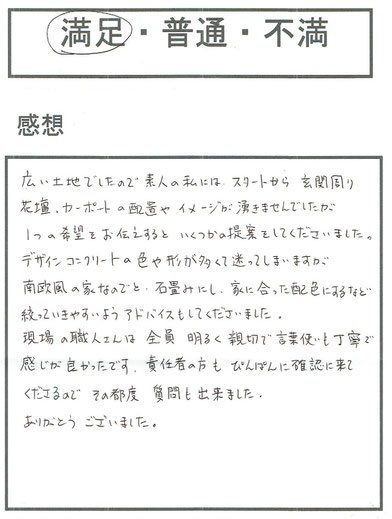 満足・普通・不満
感想
広い土地でしたので素人の私には、スタートから 玄関周り
花壇、カーポートの配置や イメージが湧きませんでしたが
1つの希望をお伝えすると いくつかの提案をしてくださいました。
デザインコンクリートの色や形が多くて迷ってしまいますが
南欧風の家なのでと、石畳みにし、家に合った配色にするなど
絞っていきやすいよう アドバイスもしてくださいました。
現場の職人さんは 全員 明るく 親切で言葉使いも丁寧で
感じが良かったです。責任者の方も ひんぱんに確認に来て
くださるので その都度 質問も出来ました。
ありがとう ございました。